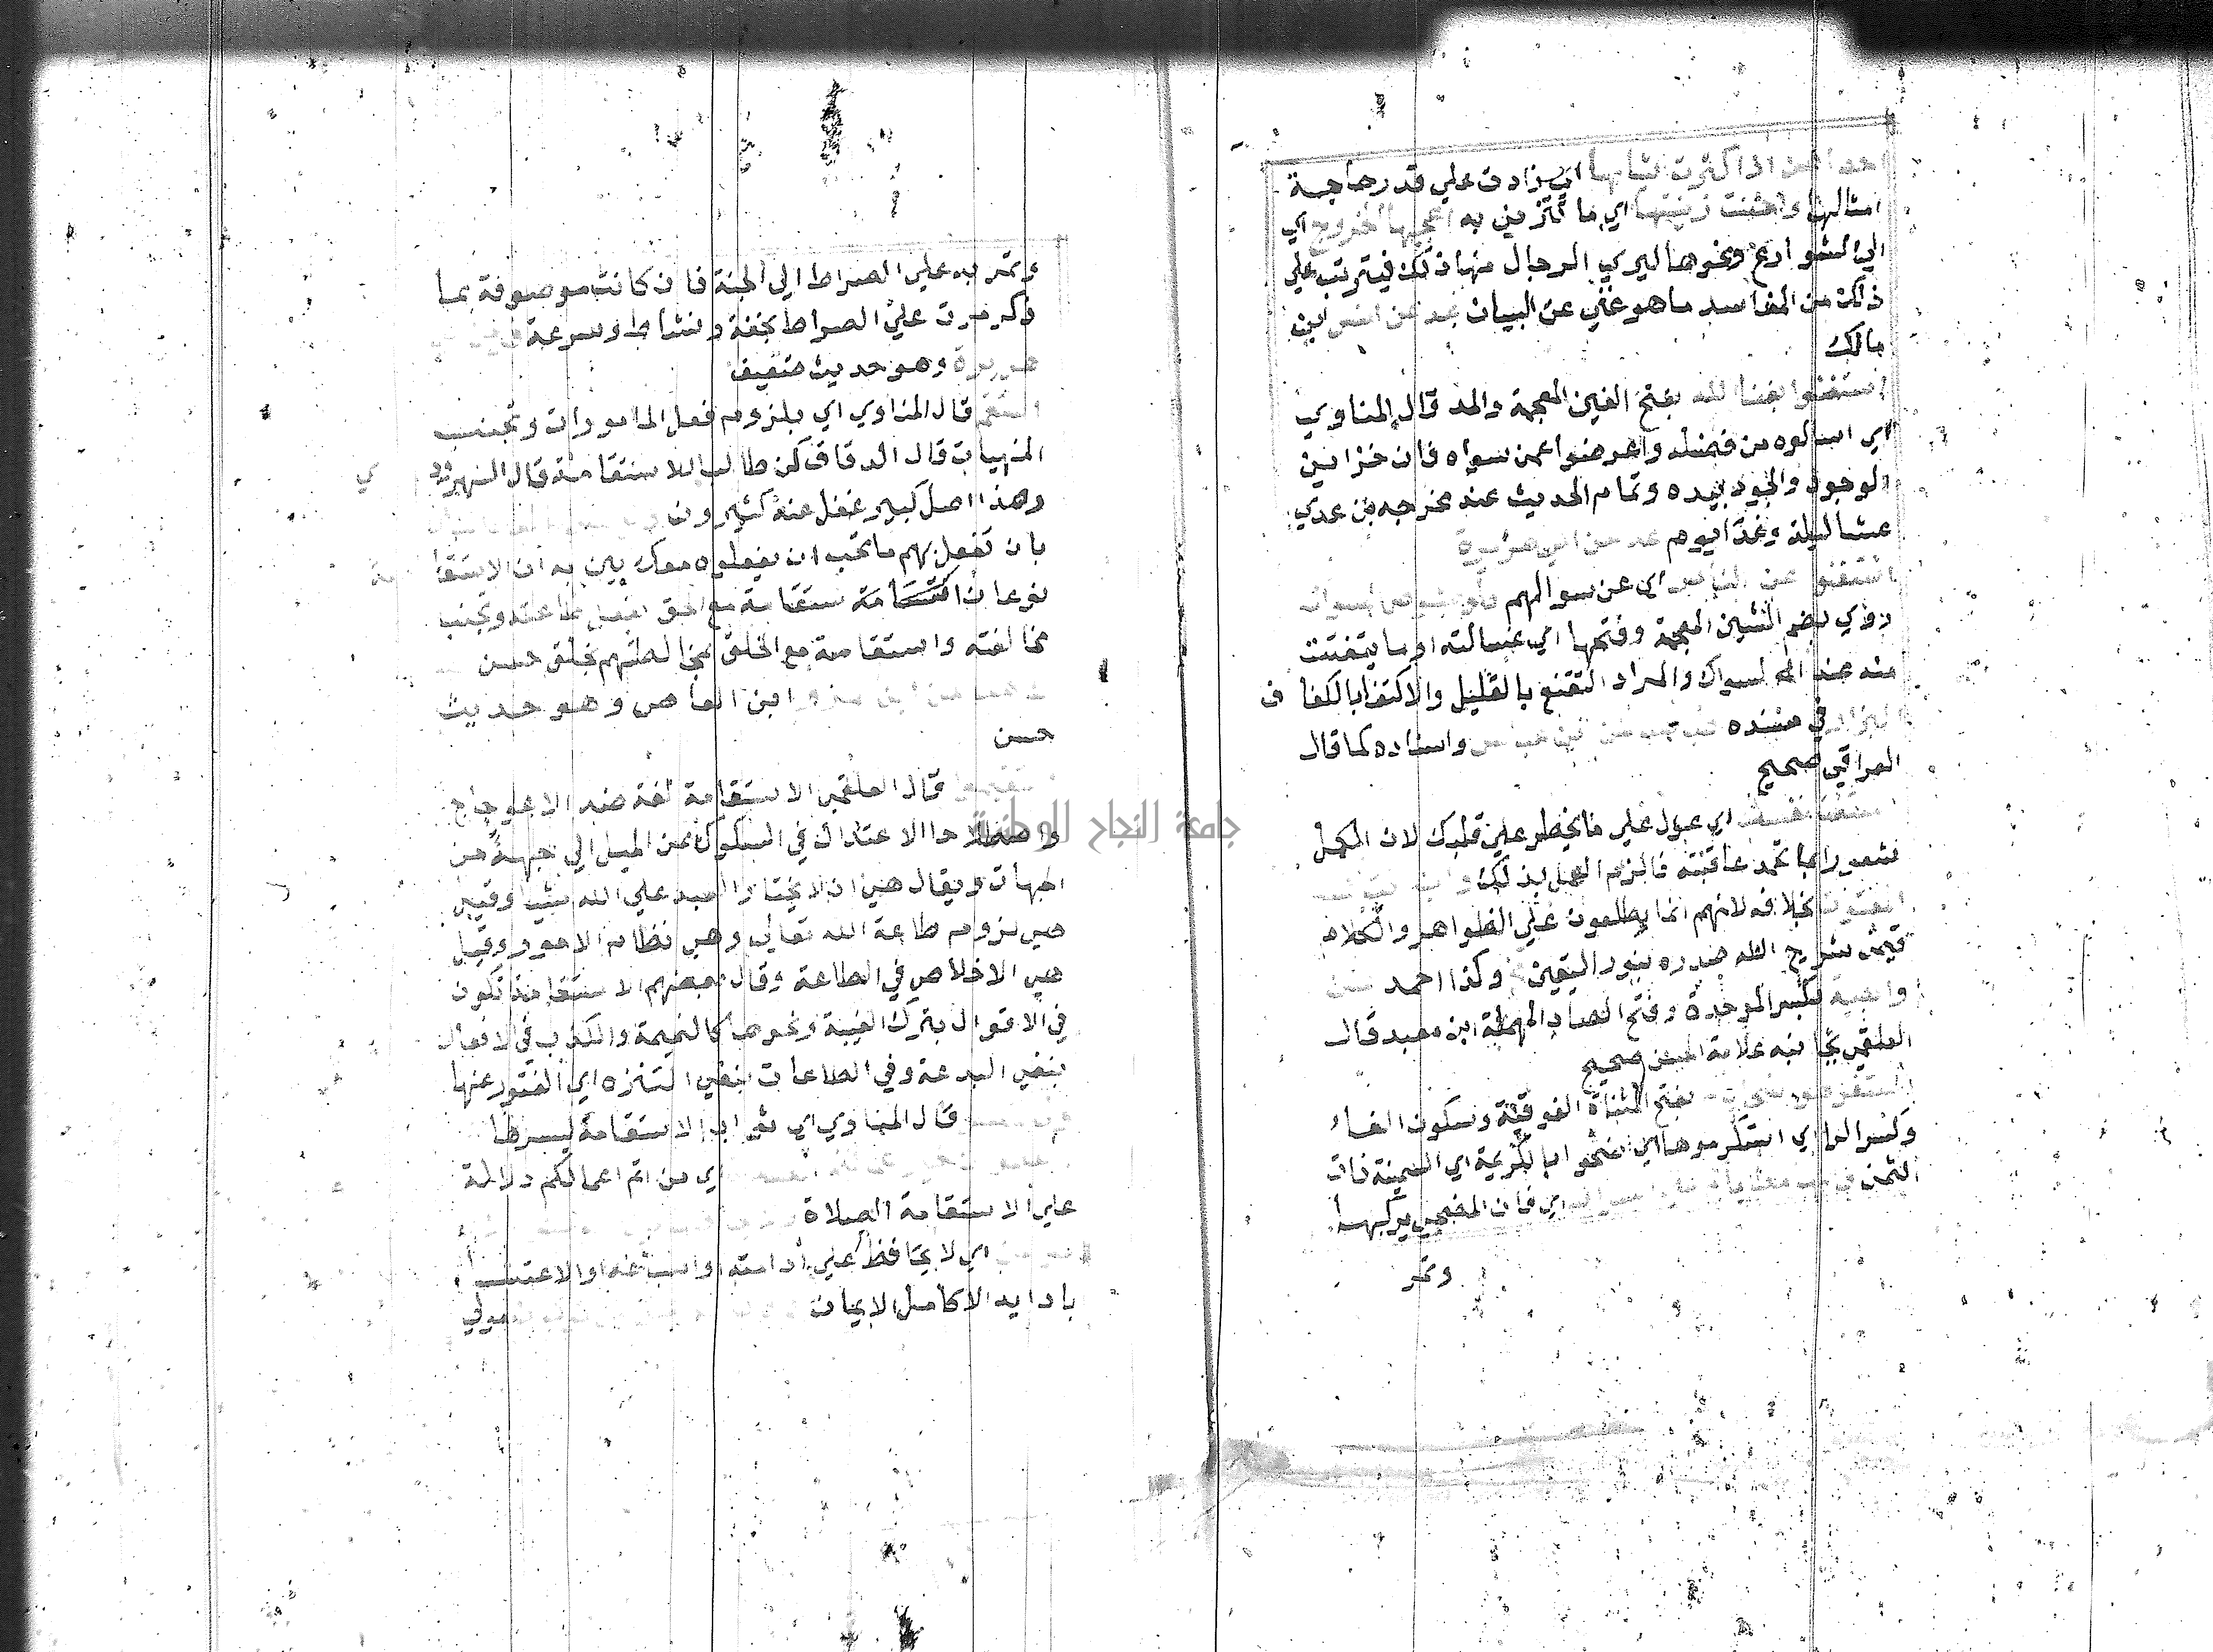 احداهن اذا كثرت ثيابها اي زادت علي قدر حاجة
امثالها واحسنت زينتها اي ما تتزين به اعجبها الخروج اي
الي الشوارع ونحوها ليري الرجال منها ذلك فيترتب علي
ذلك من المفاسد ما هو غني عن البيان عد عن انس ابن
مالك
استغنوا بغنا الله بفتح الغين المعجمة والمد قال المناوي
اي اسالوه من فضله واعرضوا عمن سواه فان خزاين
الوجود والجود بيده وتمام الحديث عند مخرجه بن عدي
عشا ليلة وغدا اليوم عد عن ابي هريرة
استغنوا عن الناس اي عن سوالهم ولو بشوص السواك
روي بضم الشين المعجمة وفتحها اي غسالته او ما يتفتت
منه عند السواك والمراد التقنع بالقليل والاكتفا بالكفاف
البزار في مسنده عن ابن عباس واسناده كما قال
العراقي صحيح
استفت نفسك اي عول علي ما يخطر علي قلبك لان
شعورا بما تحمد عاقبته فالزم العمل بذلك وان افتاك
المفتون بخلافه لانهم انما يطلعون علي الظواهر والكلام
فيمن شرح الله صدره بنور اليقين وكذا احمد عن
وابصة بكسر الموحدة وفتح الصاد المهملة ابن معبد قال
العلقمي بجانبه علامة الحسن صحيح
استفرهوا بفتح المثناة الفوقية وسكون الفاء
وكسر الرا اي استكرموها اي ضحوا بالكريمة اي السمينة ذات
الثمن فانها مطاياكم علي الصراط اي فان المضحي يركبها
وتمر
وتمر به علي الصراط الي الجنة فان كانت موصوفة بما
ذكر مرت علي الصراط بخفة ونشاط وسرعة
هريرة وهو حديث ضعيف
استقم قال المناوي اي بلزوم فعل المامورات وتجنب
المنهيات قال الدقاق كن طالبا للاستقامة قال السهروردي
وهذا اصل كبير غفل عنه كثيرون
بان تفعل بهم ما تحب ان يفعلوه معك بين به ان الاستقامة
نوعان استقامة مع الحق بفعل طاعته وتجنب
مخالفته واستقامة مع الخلق بمخالطتهم بخلق حسن
ابن العاص وهو حديث
حسن
استقيموا قال العلقمي الاستقامة لغة ضد الاعوجاج
واصطلاحا الاعتدال في السلوك عن الميل الي جهة من
الجهات ويقال هي ان لا يختار العبد علي الله شيا وقيل
هي لزوم طاعة الله تعالي وهي نظام الامور وقيل
هي الاخلاص في الطاعة وقال بعضهم الاستقامة تكون
في الاقوال بترك الغيبة ونحوها كالنميمة والكذب وفي الافعال
بنفي البدعة وفي الطاعات بنفي الفترة اي الفتور عنها
ولن تحصوا قال المناوي اي ثواب الاستقامة
اي من اتم اعمالكم دلالة
علي الاستقامة الصلاة
اي لا يحافظ علي ادامته واسباغه والاعتنا
بادابه الا كامل الايمان
جامعة النجاح الوطنية